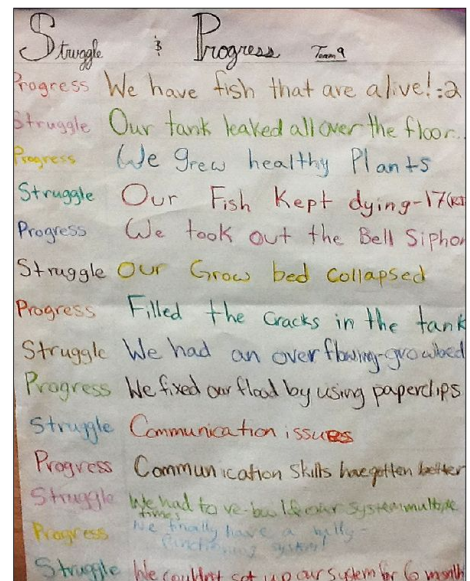 Struggle & Progress Team 9
Progress We have fish that are alive! :2
Struggle Our tank leaked all over the floor..
Progress We grew healthy Plants
Struggle Our Fish Kept dying-17
Progress We took out the Bell Sipho
Struggle Our Grow bed collapsed
Progress Filled the cracks in the tank
Struggle We had an overflowing-growbed
Progress We fixed our flood by using paperclips
Struggle Communication issues
Progress Communication Skills have gotten better
Struggle We had to re-build our system multiple
times
Progress We finally have a fully-
functioning system!
Struggle We couldn't set up our system for 6 month